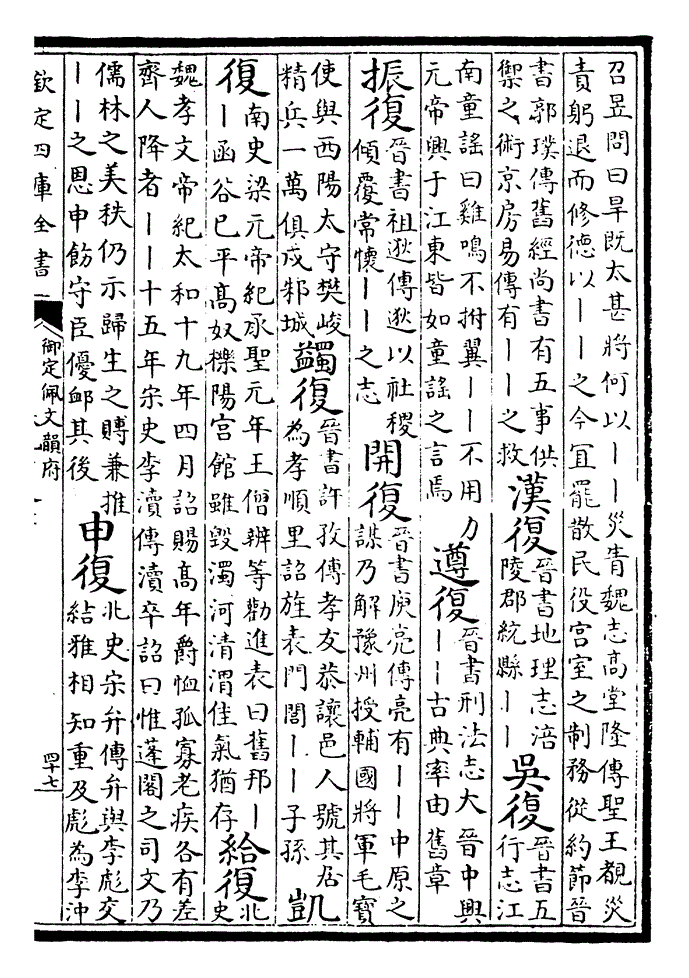 召昱問曰旱既太甚將何以——災眚魏志高堂隆傳聖王覩災
責躬退而修德以——之今宜罷散民役宮室之制務從約節晉
書郭璞傳舊經尚書有五事供
禦之術京房易傳有——之救
漢復
晉書地理志涪
陵郡統縣——
吳復
晉書五
行志江
南童謠曰雞鳴不拊翼——不用力
元帝興于江東皆如童謠之言焉
遵復
晉書刑法志大晉中興
——古典率由舊章
振復
晉書祖逖傳逖以社稷
傾覆常懷——之志
開復
晉書庾亮傳亮有——中原之
謀乃解豫州授輔國將軍毛寶
使與西陽太守樊峻
精兵一萬俱戍邾城
蠲復
晉書許孜傳孝友恭讓邑人號其居
為孝順里詔旌表門閭——子孫
凱
復
南史梁元帝紀承聖元年王僧辨等勸進表曰舊邦—
—函谷已平高奴櫟陽宮館雖毀濁河清渭佳氣猶存
給復
北
史
魏孝文帝紀太和十九年四月詔賜高年爵恤孤寡老疾各有差
齊人降者——十五年宋史李瀆傳瀆卒詔曰惟蓬閣之司文乃
儒林之美秩仍示歸生之賻兼推
——之恩申飭守臣優卹其後
申復
北史宋弁傳弁與李彪交
結雅相知重及彪為李沖
欽定四庫全書
御定佩文韻府
四十七